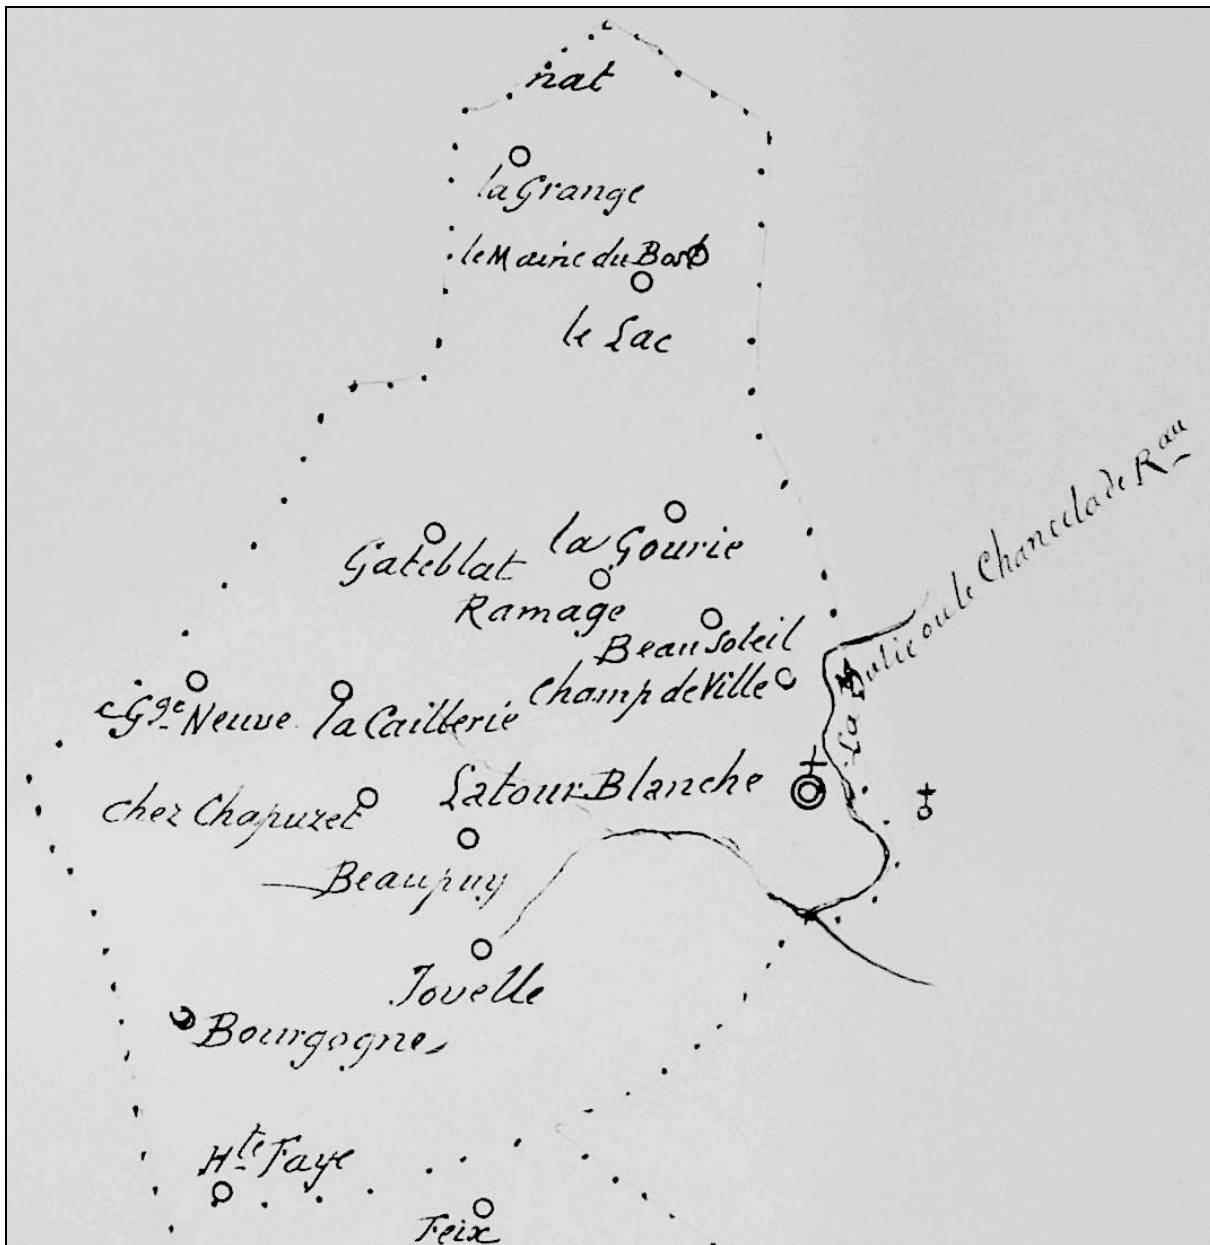 nat
la Grange
le Maine du Bost
le Lac
la Gourie
Gateblat
Ramage
Beausoleil
Champ de Ville
Gge Neuve
la Caillerie
Latour Blanche
chez Chapuzet
Beaupuy
Jovelle
Bourgogne
Hte Faye
Feix
ou le Chancelade Rau